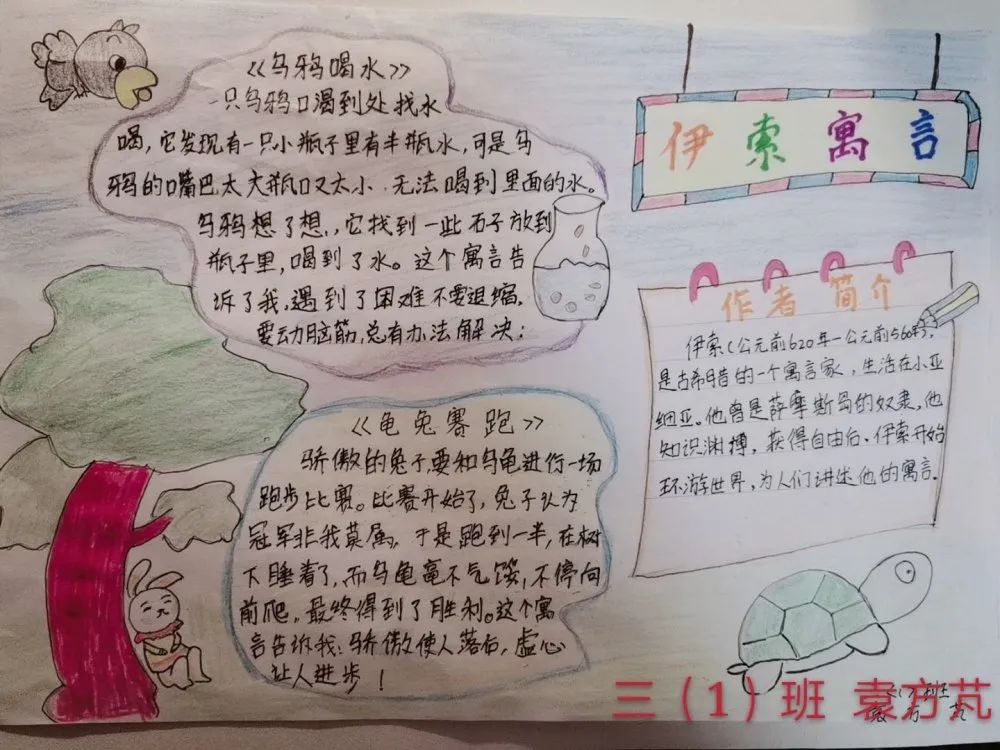 《乌鸦喝水》
一只乌鸦口渴到处找水
喝，它发现有一只小瓶子里有半瓶水，可是乌
鸦的嘴巴太大瓶口又太小，无法喝到里面的水。
乌鸦想了想，它找到一些石子放到
瓶子里，喝到了水。这个寓言告
诉了我，遇到了困难不要退缩，
要动脑筋，总有办法解决；
伊索寓言
作者简介
伊索（公元前620年—公元前560年），
是古希腊的一个寓言家，生活在小亚
细亚。他曾是萨摩斯岛的奴隶，他
知识渊博，获得自由后，伊索开始
环游世界，为人们讲述他的寓言。
《龟兔赛跑》
骄傲的兔子，要和乌龟进行一场
跑步比赛。比赛开始了，兔子认为
冠军非我莫属，于是跑到一半，在树
下睡着了，而乌龟毫不气馁，不停向
前爬，最终得到了胜利。这个寓
言告诉我：骄傲使人落后，虚心
让人进步！
三（1）班 袁方芃